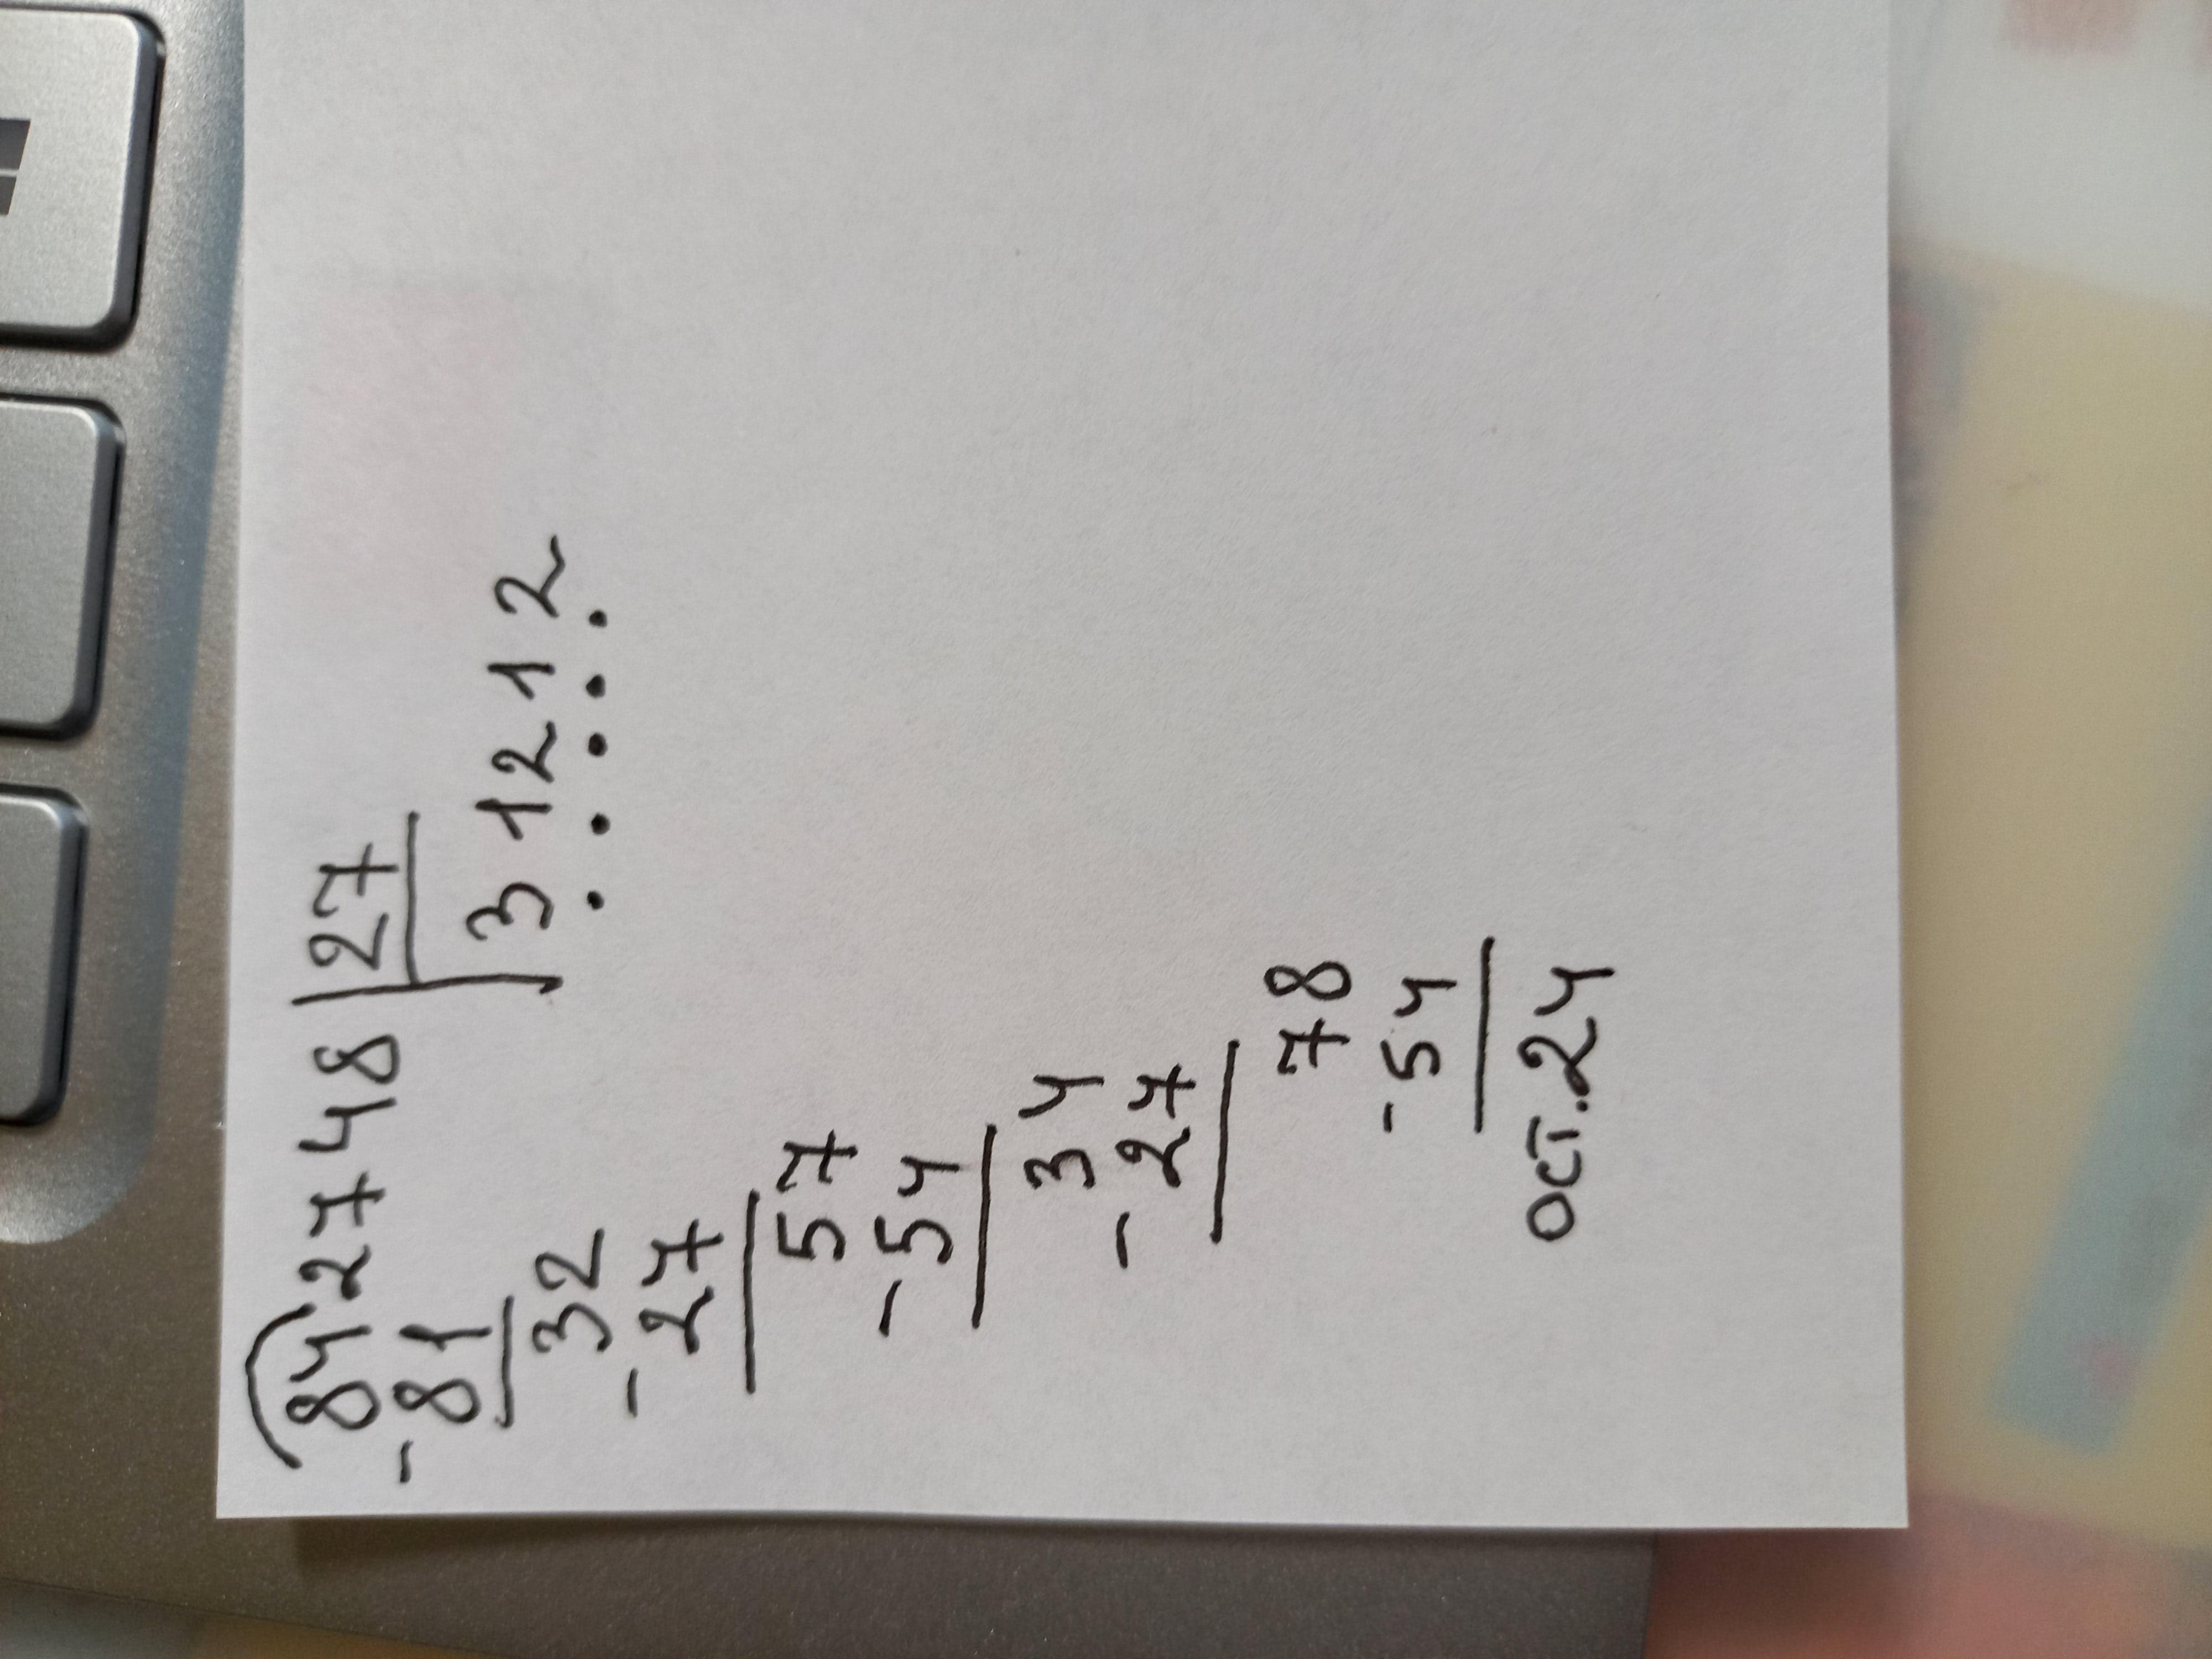 842748 27
-81 31212
32
-27
57
-54
34
-27
78
-54
ост. 24